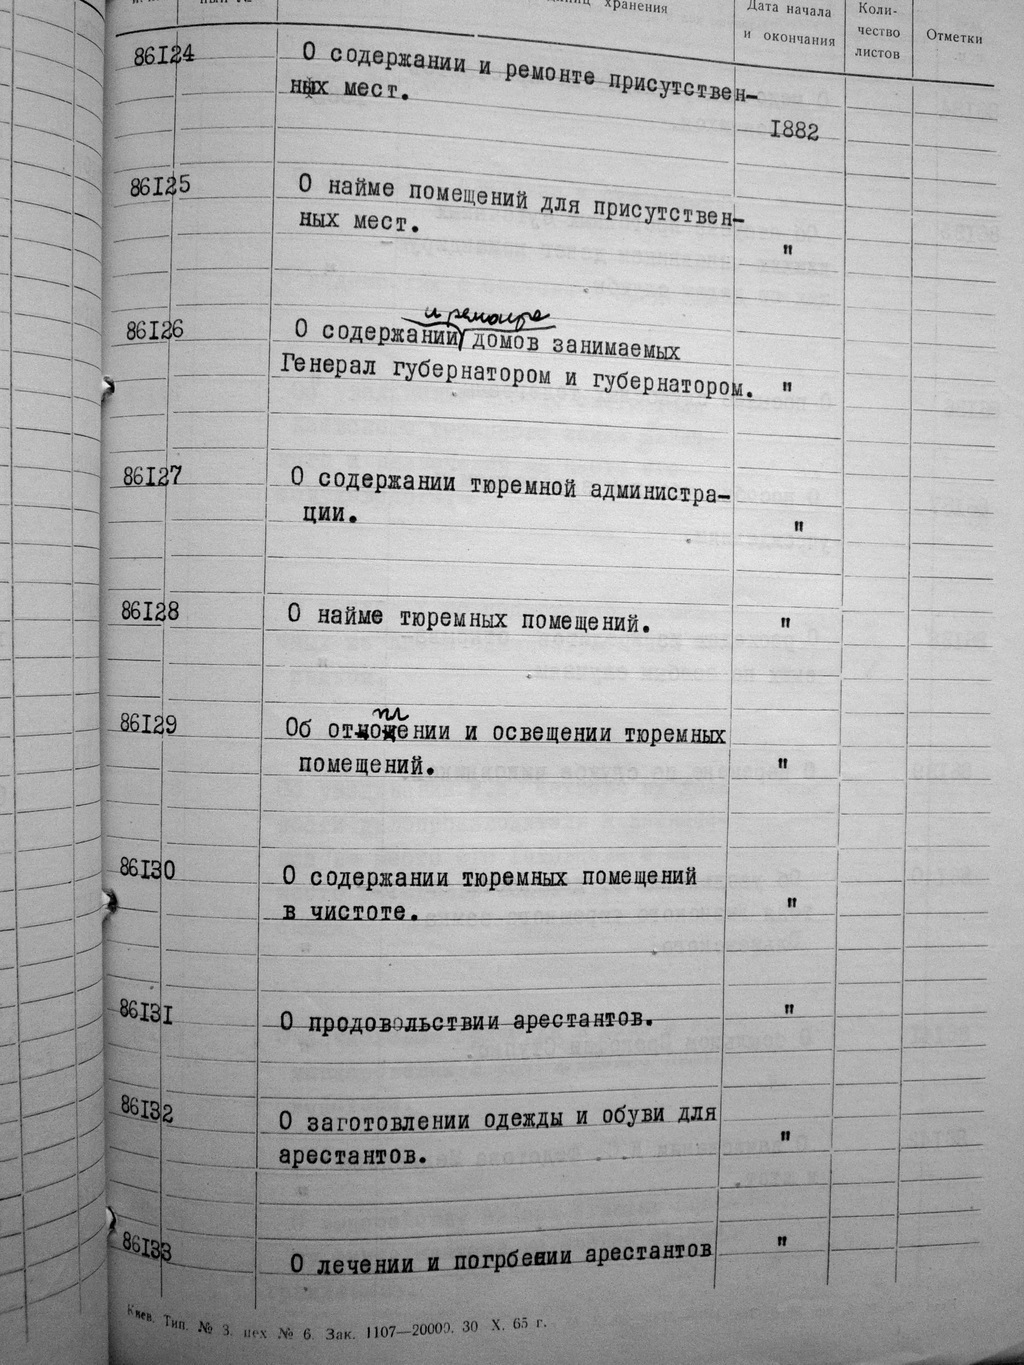 хранения
Дата начала
и окончания
Коли-
чество
листов
Отметки
86I24 О содержании и ремонте присутствен-
ных мест.
I882
86I25 О найме помещений для присутствен-
ных мест.
"
и ремонте
86I26 О содержании домов занимаемых
Генерал губернатором и губернатором. "
86I27 О содержании тюремной администра-
ции.
"
86I28 О найме тюремных помещений. "
пл
86I29 Об отноцении и освещении тюремных
помещений. "
86I30 О содержании тюремных помещений
в чистоте. "
86I3I О продовольствии арестантов. "
86I32 О заготовлении одежды и обуви для
арестантов. "
86I33 О лечении и погрбении арестантов "
Киев. Тип. № 3. цех № 6. Зак. 1107—20000. 30 X. 65 г.